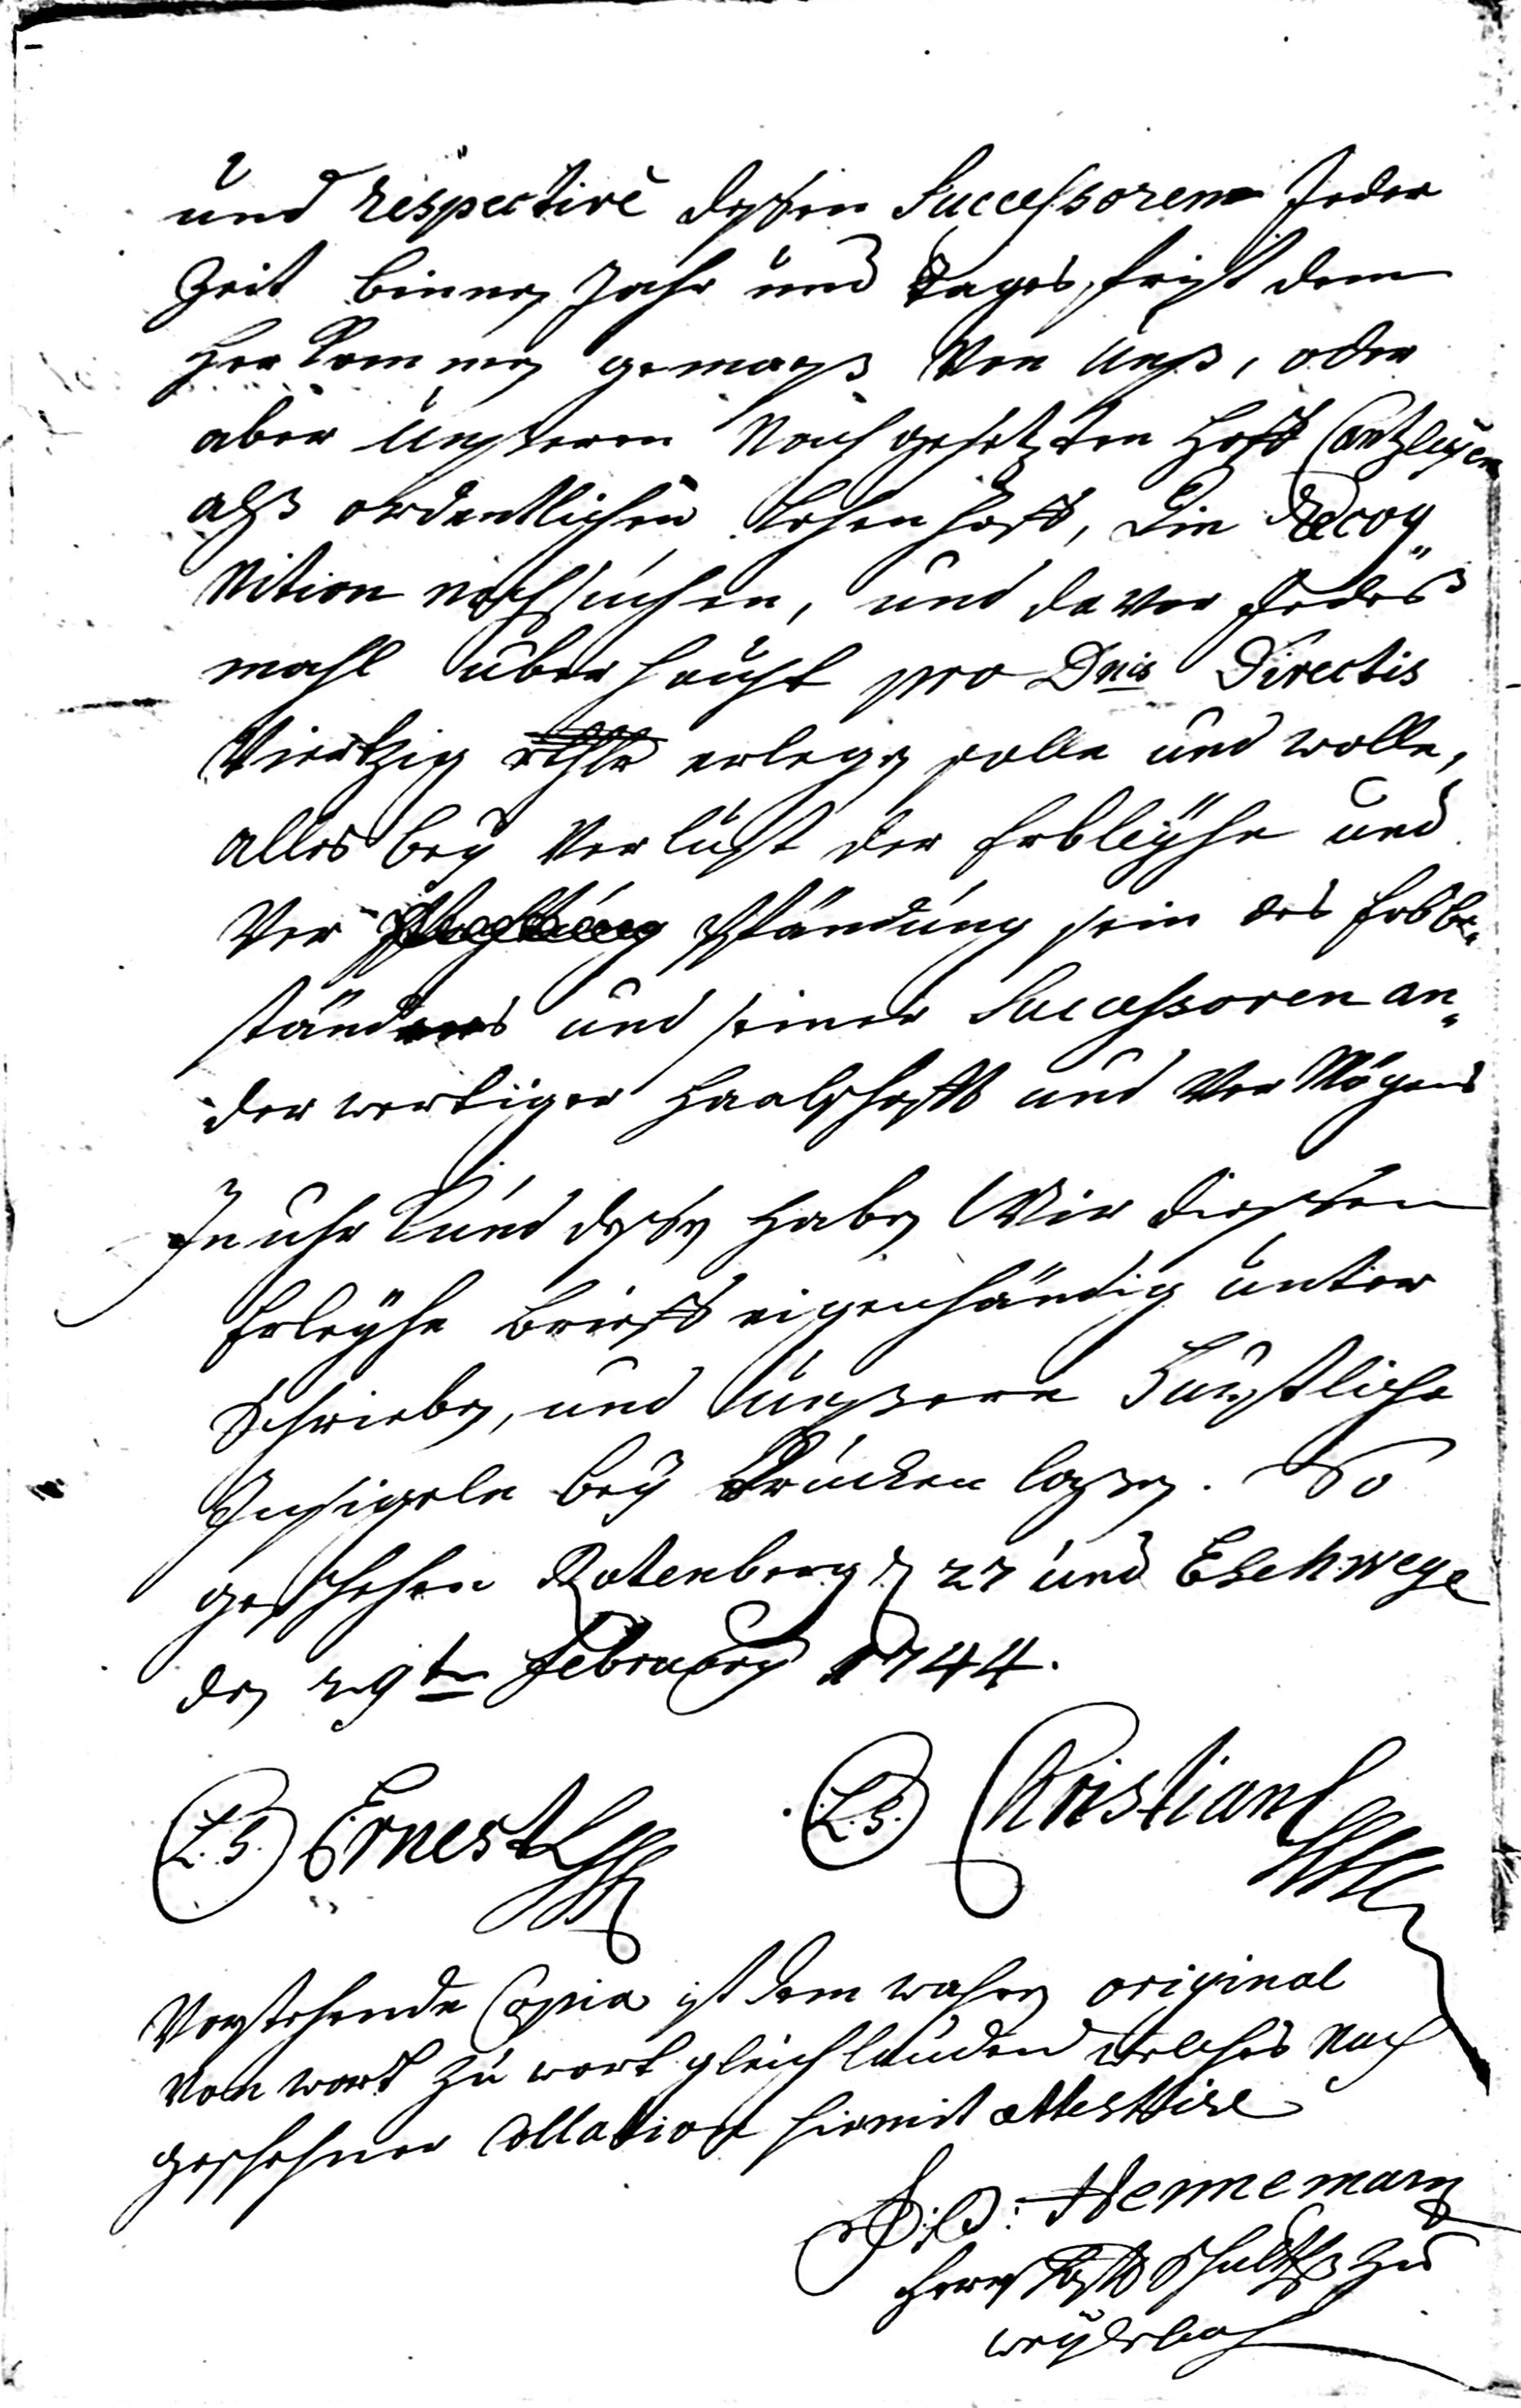 und respective dessen Successoren Jeder
Zeit binnen Jahr und Tages frist dem
Herkommen gemaeß Von Unß, oder
aber Unßeren Nachgesetzten Hoff Cantzleyen
alß ordentlichen Lehenhoff, Die Recog„
Nition nachsuchen, und davor Jedeß
mahl überhaupt pro Dnis Directis
Viertzig rthlr erlegen solle und wolle,
alles bey Verlust der Erbleyhe und
Ver pfändung sein des Erbbe„
ständers und seiner Successoren an„
derwertiger Haabschafft und Vermögens
In uhrkund dessen Haben Wir diessen
Erleyhe Brieff eigenhändig unter
Schrieben, und unßere Fürstliche
Insigeln bey Drücken laßen. So
geschehen Rotenberg d 27 und Eschwege
den 29ten February 1744.
(L.S.) Ernest L (L.S.) Christian L
Vorstehende Copia ist dem wahren original
Von wort zu wort gleichlaudend welches Nach
geschehener Collation hiermit attestire
Hennemann
Schultheß zu